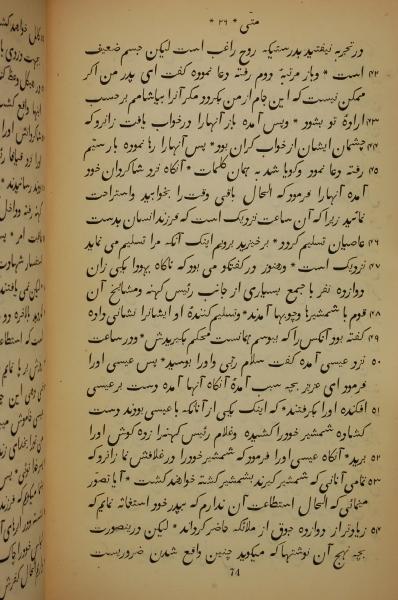 متی * ۲۶ *
در تجربه نیفتید بدرستیکه روح راغب است لیکن جسم ضعیف
۴۲ است * وباز مرتبهٔ دوم رفته دعا نموده گفت ای پدر من اکر
ممکن نیست که این جام از من بکذرد مکر آنرا بیاشامم بر حسب
۴۳ ارادهٔ تو بشود * وپس آمده باز آنهارا در خواب یافت زانروکه
۴۴ چشمان ایشان از خواب کران بود * پس آنهارا رها نموده بار سیم
۴۵ رفته دعا نمود وکویا شد به همان کلمات * آنکاه نزد شاکردان خود
آمده آنهارا فرمود که الحال باقی وقت را بخوابید واستراحت
نمائید زیرا که آن ساعت نزدیک است که فرزند انسان بدست
۴۶ عاصیان تسلیم کردد * برخیزید برویم اینک آنکه مرا تسلیم می نماید
۴۷ نزدیک است * وهنوز در کفتکو می بود که ناکاه یهودا یکی از ان
دوازده نفر با جمع بسیاری از جانب رئیس کهنه ومشایخ آن
۴۸ قوم با شمشیرها وچوبها آمدند * وتسلیم کنندهٔ او ایشانرا نشانی داده
۴۹ کفته بود آنکس را که ببوسم همانست محکم بکیریدش * ودر ساعت
۵۰ نزد عیسی آمده کفت سلام ربی واورا بوسید * پس عیسی اورا
فرمود ای عزیز بچه سبب آمدهٔ آنکاه آنها آمده دست بر عیسی
۵۱ افکنده اورا بکرفتند * که اینک یکی از آنانکه با عیسی بودند دست
کشاده شمشیر خودرا کشیده وغلام رئیس کهنه را زده کوش اورا
۵۲ برید * آنکاه عیسی اورا فرمود که شمشیر خودرا در غلافش نما زانروکه
۵۳ تمامی آنانی که شمشیر کیرند بشمشیر کشته خواهند کشت * آیا تصور
مینمائی که الحال استطاعت آن ندارم که به پدر خود استغاثه نمایم که
۵۴ زیاده تر از دوازده جوق از ملائکه حاضر کرداند * لیکن درینصورت
بچه نهج آن نوشتها که میکوید چنین واقع شدن ضروریست
74